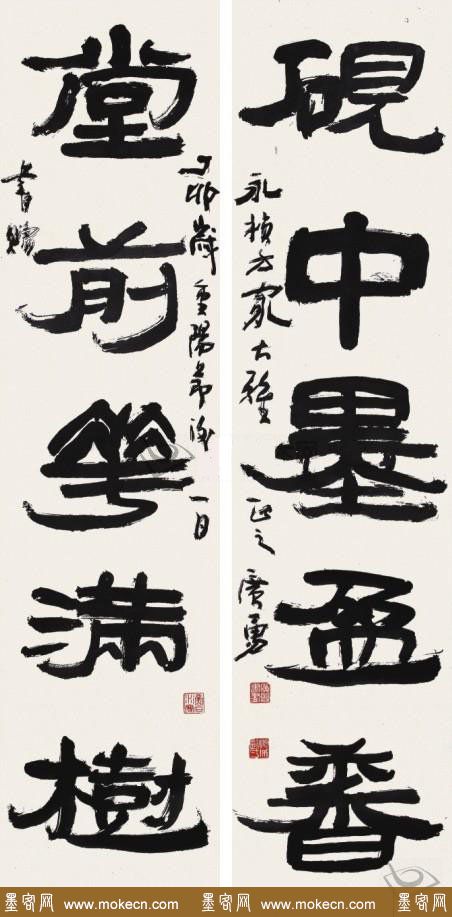 硯中墨盈香
永楨方家大雅 正之
丁卯歲重陽節後一日
堂前華滿樹
書贈
墨客网 www.mokecn.com 墨客网 www.mokecn.com 墨客网